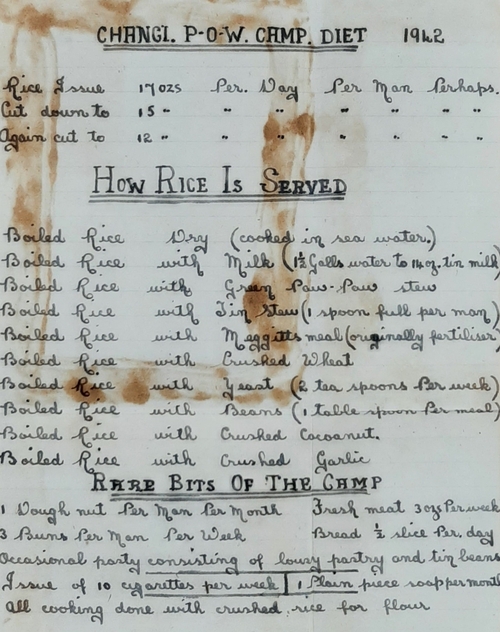 CHANGI. P-O-W. CAMP. DIET 1942
Rice Issue 17 ozs Per. Day Per Man Perhaps.
Cut down to 15 " " " " " "
Again cut to 12 " " " " " "
HOW RICE IS SERVED
Boiled Rice Dry (cooked in sea water.)
Boiled Rice with Milk (1½ Galls water to 14 oz. tin milk
Boiled Rice with Green Paw-Paw stew
Boiled Rice with Tin Stew (1 spoon full per man)
Boiled Rice with Meggitts meal (originally fertiliser)
Boiled Rice with Crushed Wheat
Boiled Rice with Yeast (2 tea spoons Per week)
Boiled Rice with Beans (1 table spoon Per meal)
Boiled Rice with Crushed Cocoanut.
Boiled Rice with Crushed Garlic
RARE BITS OF THE CAMP
1 Dough nut Per Man Per Month Fresh meat 3 ozs Per week
3 Buns Per Man Per Week Bread ½ slice Per. day
Occasional party consisting of lousy pastry and tin beans
Issue of 10 cigarettes per week 1 Plain piece soap per month
All cooking done with crushed rice for flour